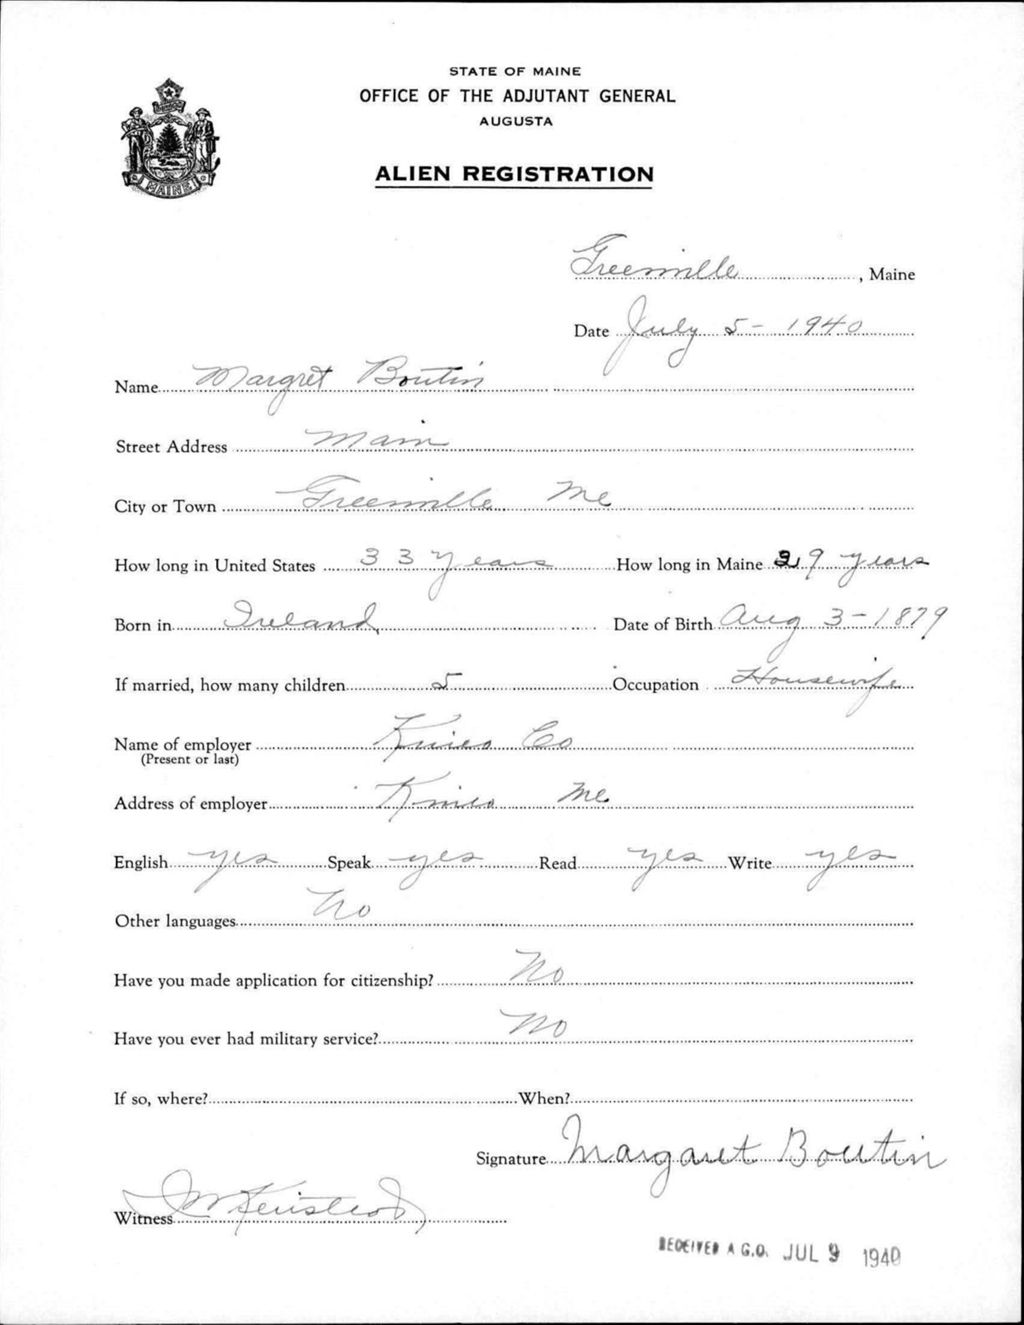 STATE OF MAINE
OFFICE OF THE ADJUTANT GENERAL
AUGUSTA
MAINE
ALIEN REGISTRATION
Greenville, Maine
Date July 5 - 1940
Name Margret Boutin
Street Address Main
City or Town Greenville Me
How long in United States 33 years How long in Maine 29 years
Born in Ireland Date of Birth Aug 3 - 1879
If married, how many children 5 Occupation Housewife
Name of employer Kineo Co
(Present or last)
Address of employer Kineo Me
English yes Speak yes Read yes Write yes
Other languages No
Have you made application for citizenship? No
Have you ever had military service? No
If so, where? When?
Signature Margaret Boutin
Witness
RECEIVED A.G.O. JUL 9 1940